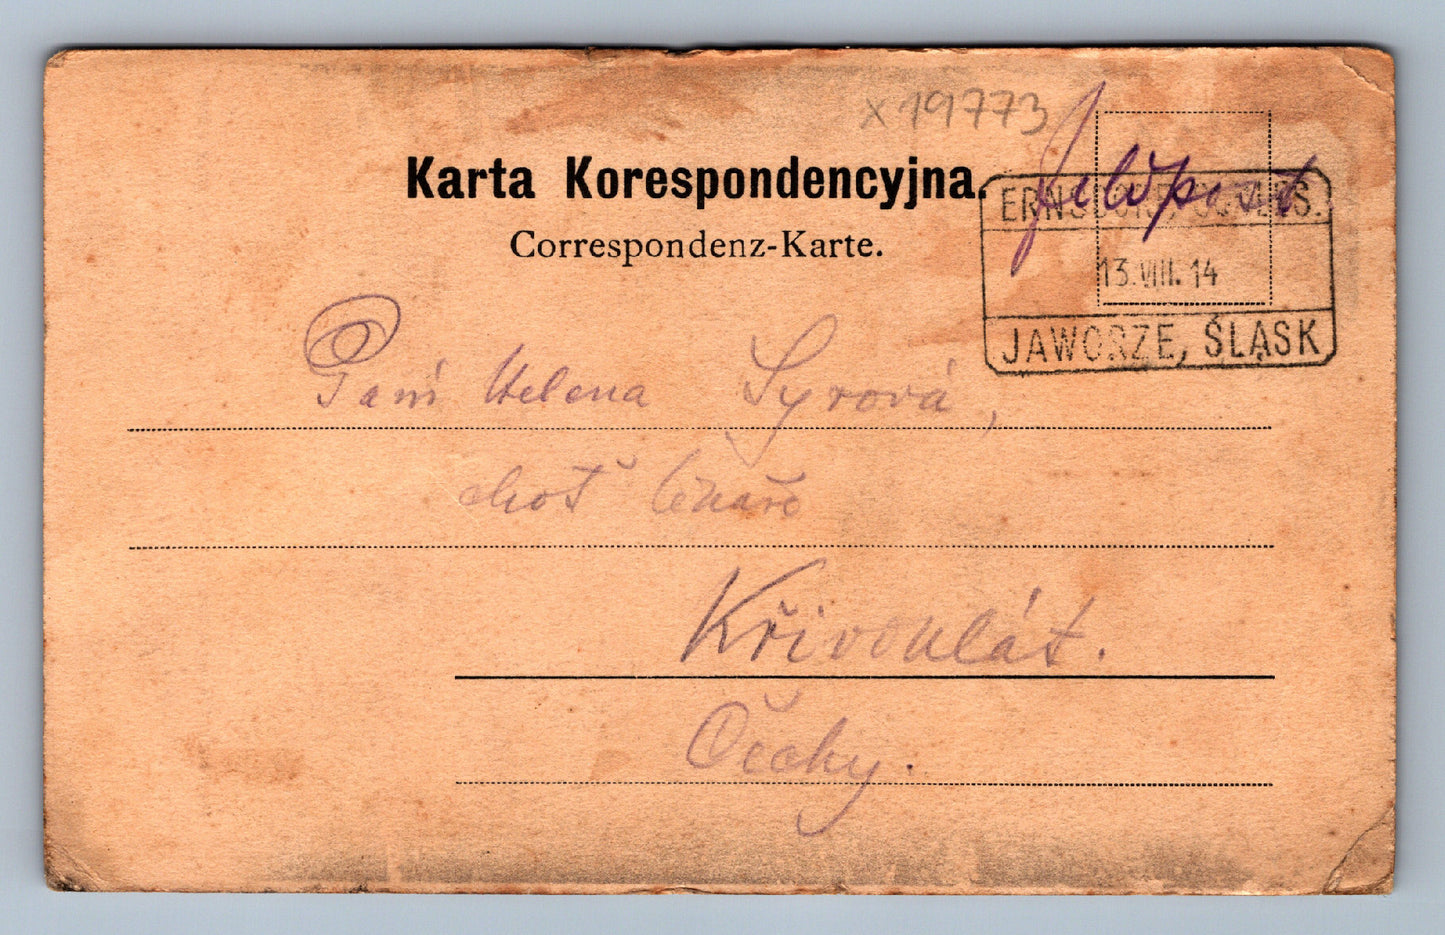 x 19773
Karta Korespondencyjna.
Correspondenz-Karte.
Feldpost
ERNSDORF, SCHLES.
13.VIII.14
JAWORZE, ŚLĄSK
Paní Helena Syrová,
choť lékaře
Křivoklát.
Čechy.